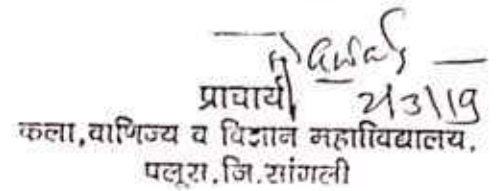 प्राचार्य
2/3/19
कला,वाणिज्य व विज्ञान महाविद्यालय,
पलूस.जि.सांगली